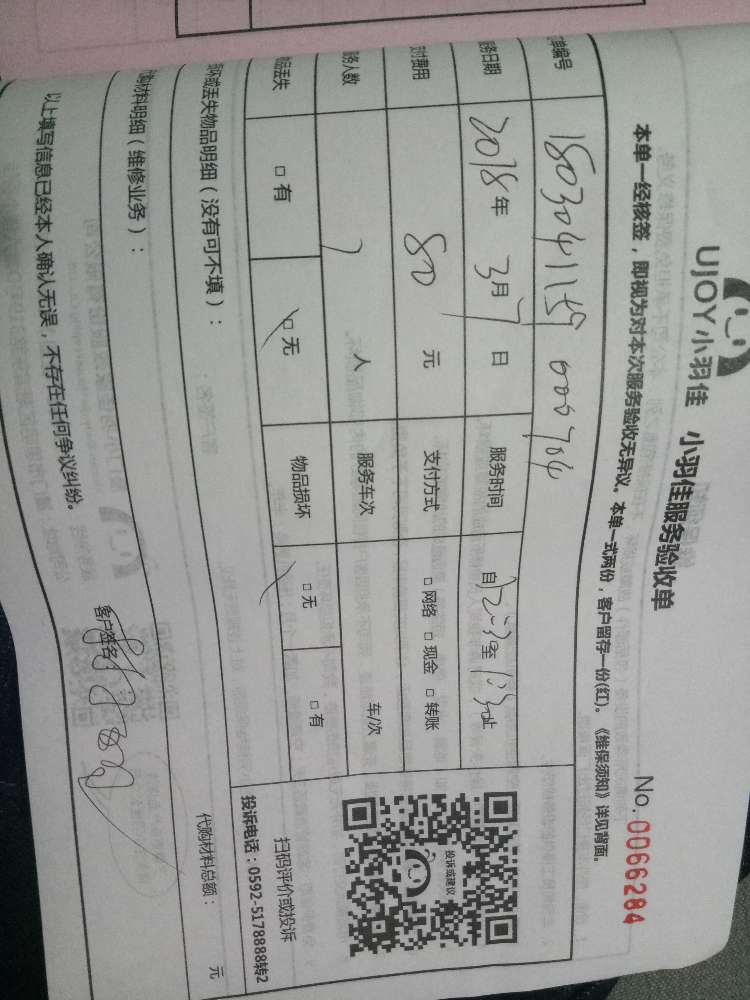 UJOY小羽佳 小羽佳服务验收单
No. 0066284
本单一经核签，即视为对本次服务验收无异议。本单一式两份，客户留存一份(红)。《维保须知》详见背面。
单编号
务日期 2018年 3月7日 服务时间 自 至 止
付费用 80 元 支付方式 □ 网络 □ 现金 □ 转账
务人数 人 服务车次 车/次
品丢失 □ 有 □ 无 物品损坏 □ 无 □ 有
投诉或建议
扫码评价或投诉
投诉电话：0592-5178888转2
坏或丢失物品明细（没有可不填）：
购材料明细（维修业务）：
代购材料总额： 元
以上填写信息已经本人确认无误，不存在任何争议纠纷。
客户签名